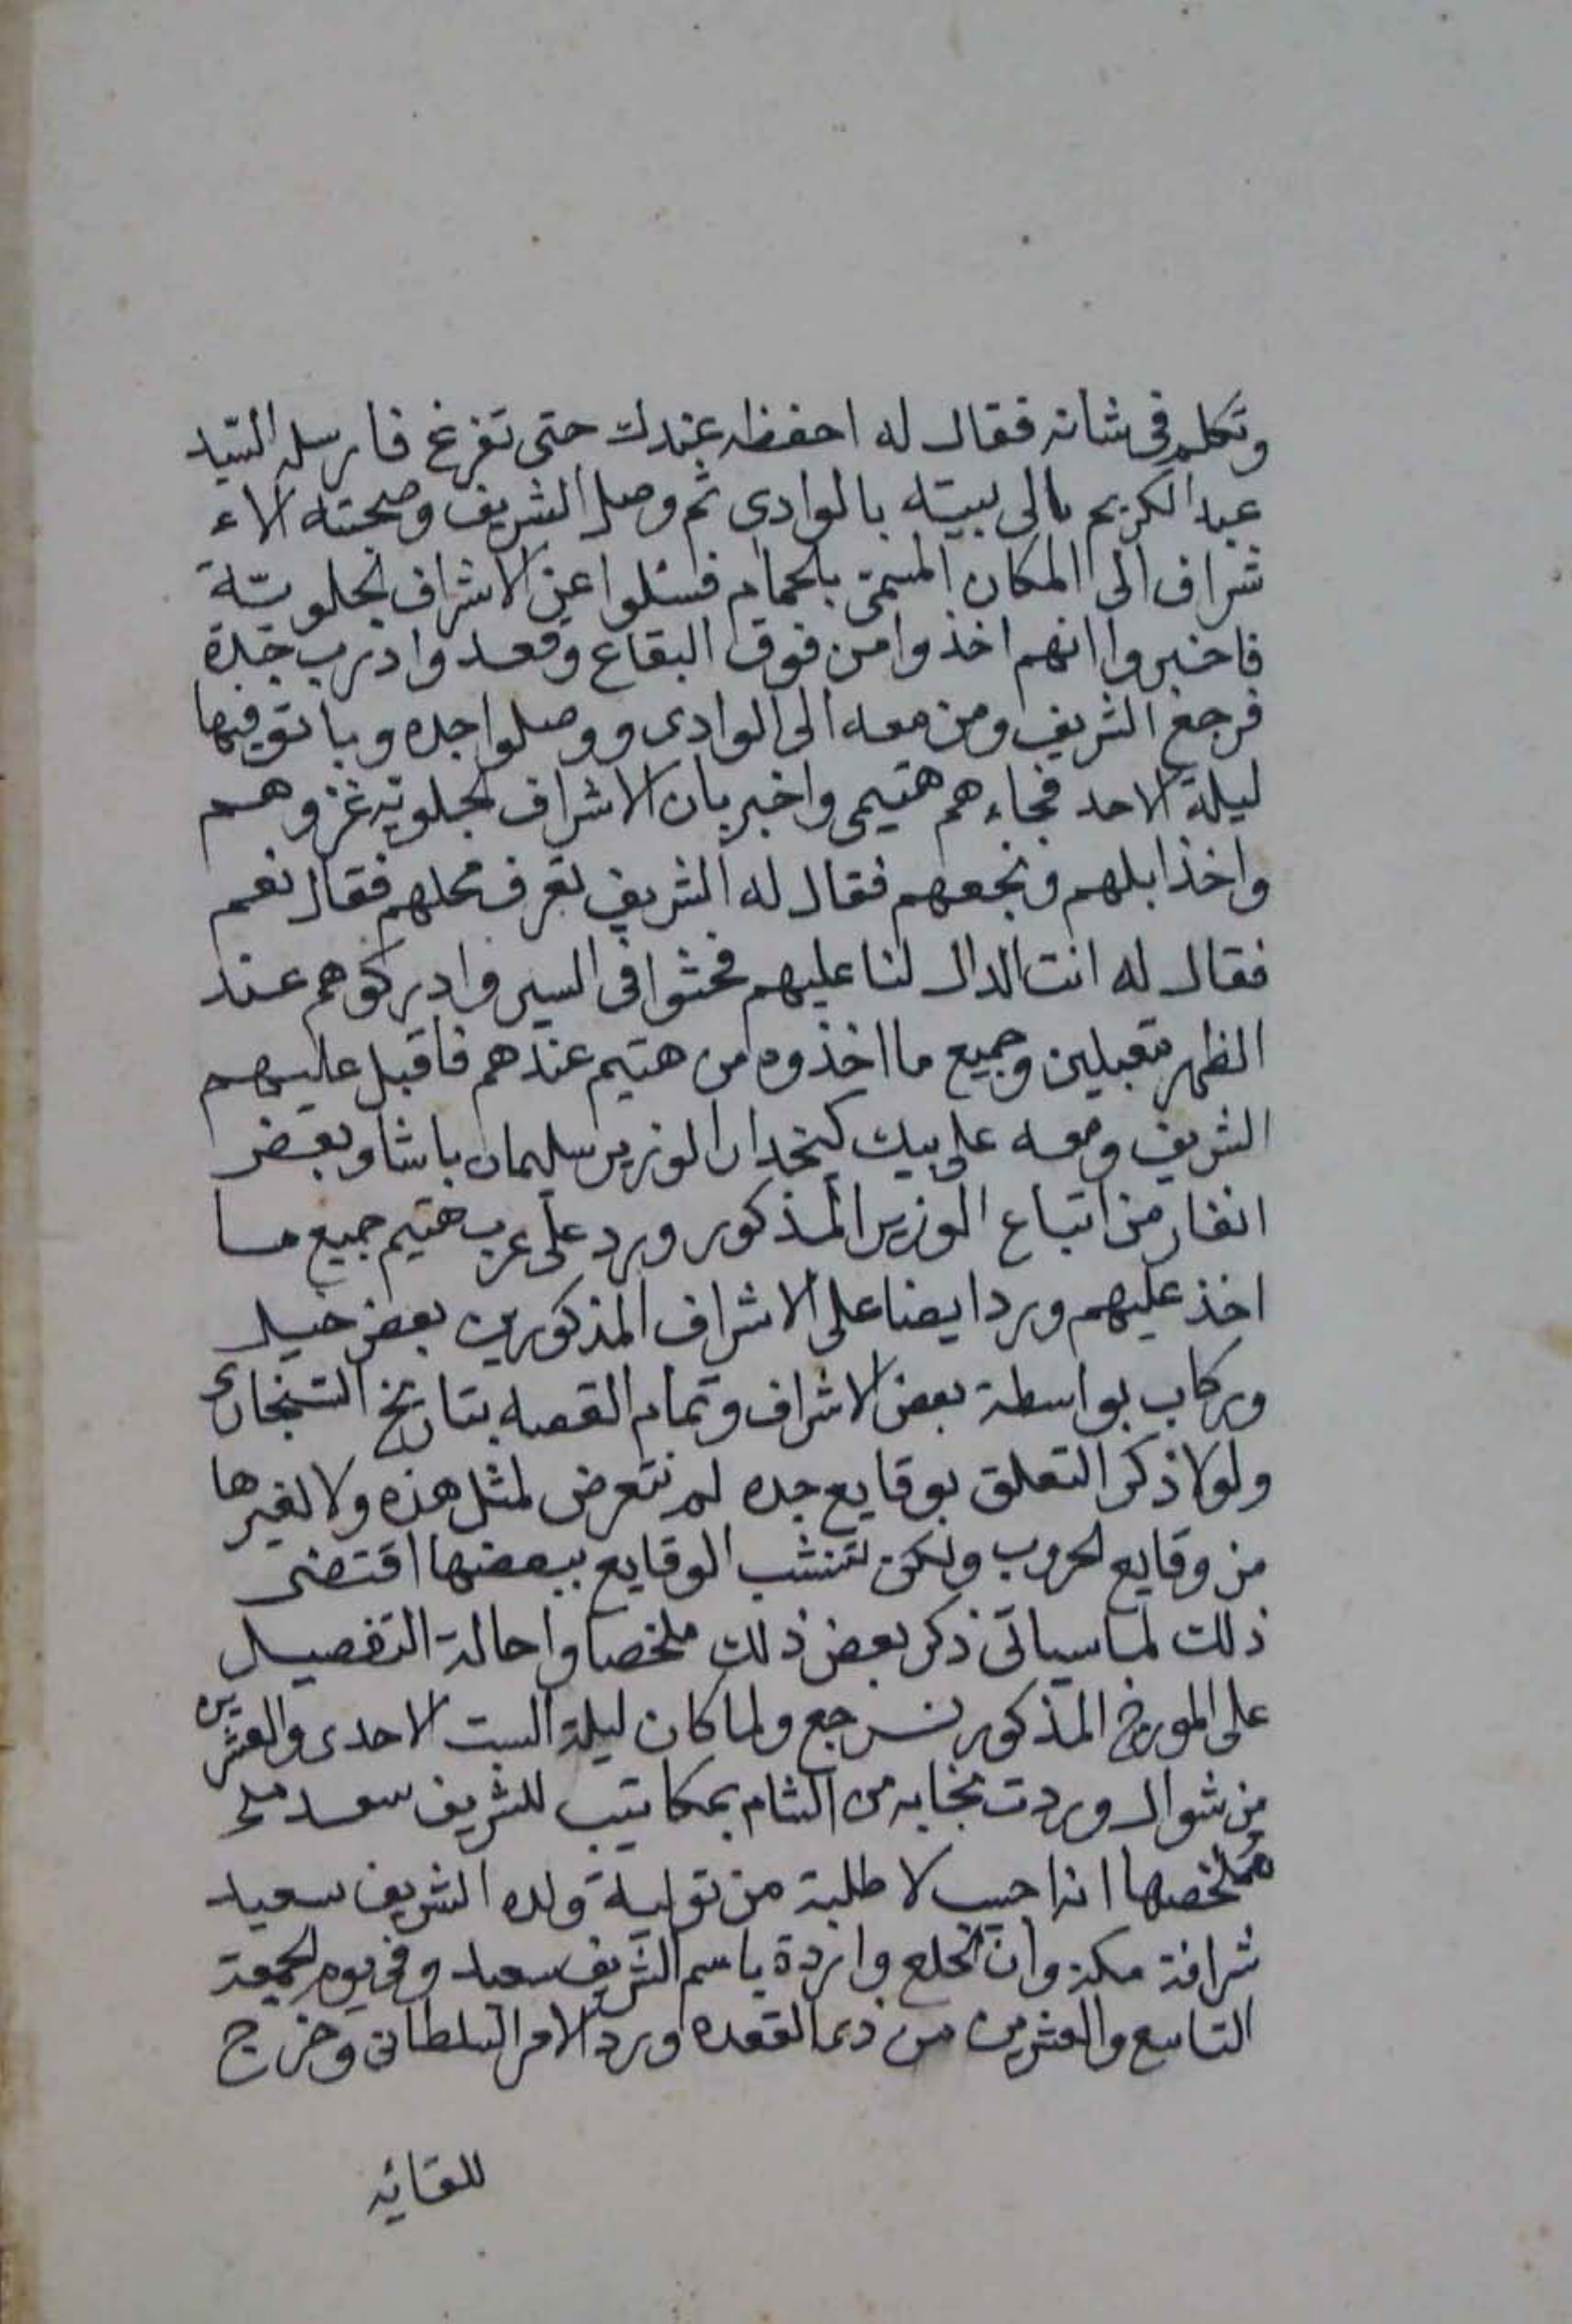 وتكلم في شانه فقال له احفظه عندك حتى تفرغ فارسله السيد
عبد الكريم الى بيته بالوادى ثم وصل الشريف وصحبته الاء
شراف الى المكان المسمى بالحمام فسئلوا عن الاشراف الجلويّة
فاخبروا انهم اخذوا من فوق البقاع وقعدوا درب جدة
فرجع الشريف ومن معه الى الوادى ووصلوا جده وباتو فيها
ليلة الاحد فجاءهم هتيمى واخبر بان الاشراف الجلويه غزوهم
واخذ ابلهم ونجعهم فقال له الشريف تعرف محلهم فقال نعم
فقال له انت الدال لنا عليهم فحثوا فى السير وادركوهم عند
الظهر مقبلين وجميع ما اخذوه من هتيم عندهم فاقبل عليهم
الشريف ومعه على بيك كيخدا الوزير سليمان باشا وبعض
انفار من اتباع الوزير المذكور ورد على عرب هتيم جميع ما
اخذ عليهم ورد ايضا على الاشراف المذكورين بعض خيل
وركاب بواسطة بعض الاشراف وتمام القصه بتاريخ السنجارى
ولولا ذكر التعلق بوقايع جده لم نتعرض لمثل هذه ولا لغيرها
من وقايع الحروب ولكن تنشب الوقايع ببعضها اقتضى
ذلك لما سياتى ذكر بعض ذلك ملخصا واحالة التفصيل
على المورخ المذكور نرجع ولما كان ليلة السبت الاحدى والعشرين
من شوال وردت نجابه من الشام بمكاتيب للشريف سعد
ملخصها انه اجيب لا طلبة من تولية ولده الشريف سعيد
شرافة مكة وان الخلع واردة باسم الشريف سعيد وفى يوم الجمعة
التاسع والعشرين من ذى القعده ورد الامر السلطانى وخرج
للقائه